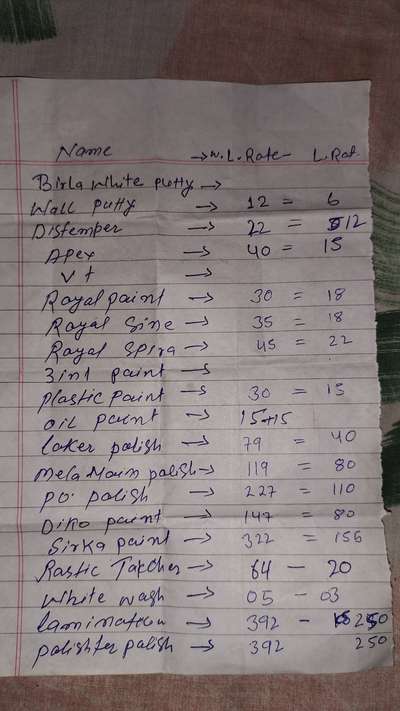 Name → w. L. Rate - L. Rat
Birla White putty →
Wall putty → 12 = 6
Distemper → 22 = 12
Apex → 40 = 15
V t →
Royal paint → 30 = 18
Royal Sine → 35 = 18
Royal Spira → 45 = 22
3 in 1 paint →
plastic paint → 30 = 15
oil paint → 15+15
laker polish → 79 = 40
mela Main polish → 119 = 80
PO. polish → 227 = 110
Diko paint → 147 = 80
Sirka paint → 322 = 156
Rastic Takcher → 64 - 20
White wash → 05 - 03
lamination → 392 - 250
polishter polish → 392 250